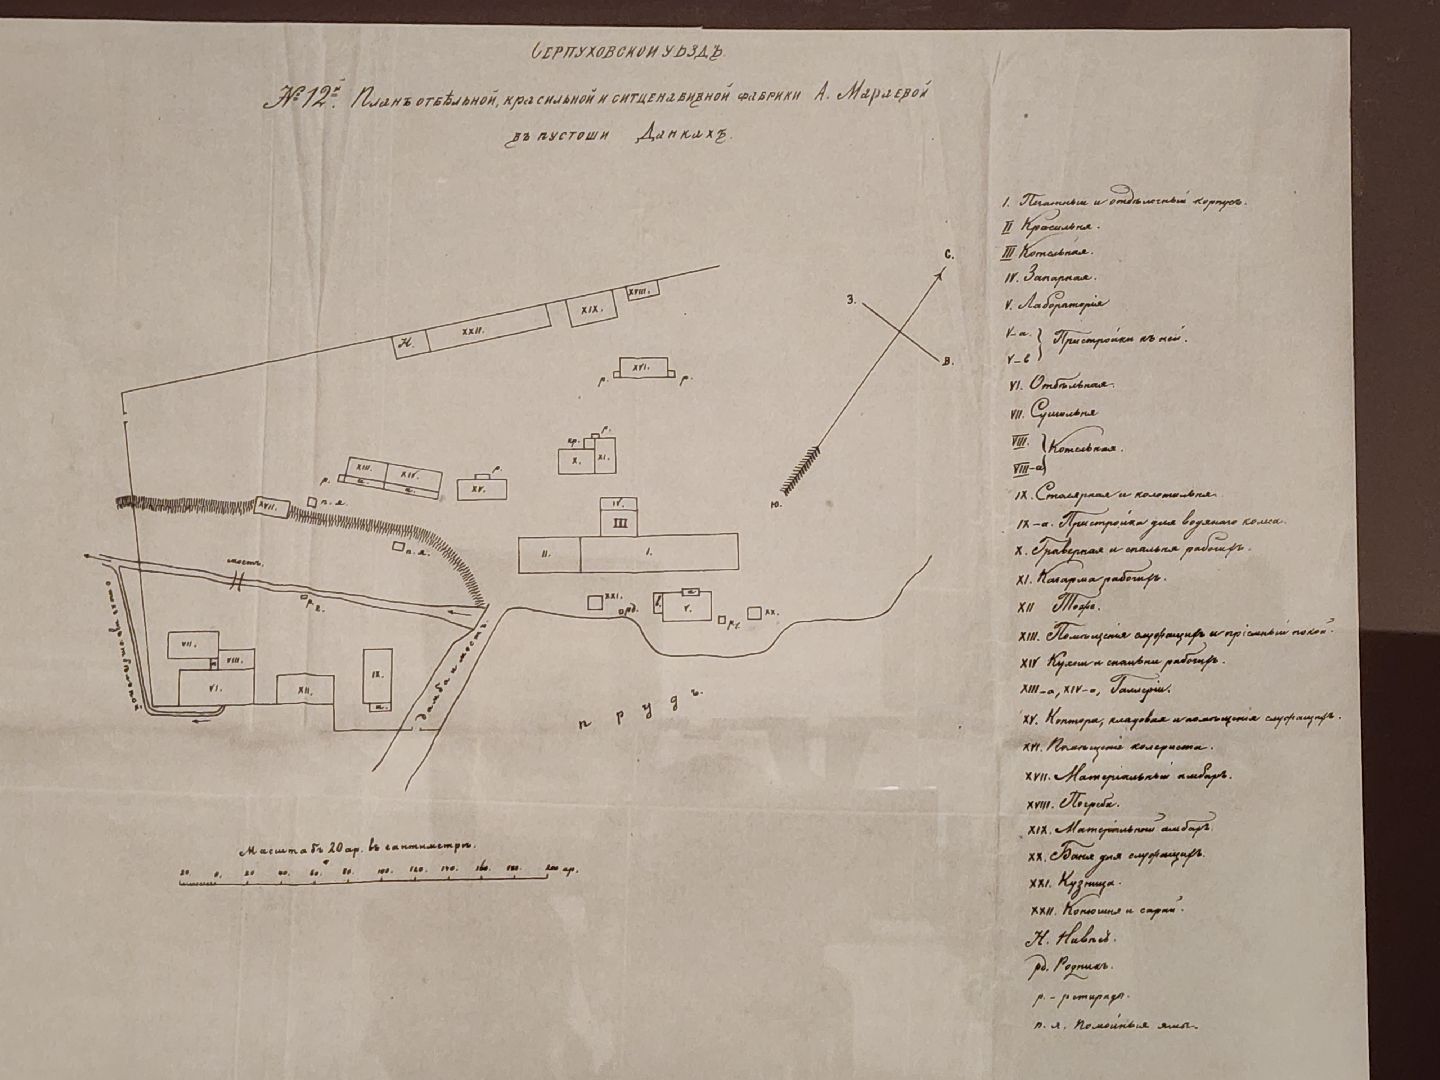 Серпуховской уѣздъ.
№ 12й. Планъ отбѣльной, красильной и ситценабивной фабрики А. Мараевой
въ пустоши Данкахъ.
С.
З.
В.
Ю.
XVIII.
XIX.
XXII.
Н.
XVI.
р. р.
р.
кр.
X. XI.
XIII. XIV.
р. а. а.
р.
XV.
XVII. п.я.
IV.
III
II. I.
п.я.
мостъ.
р.
XXI. рд. в. а V. р. XX.
VII.
а VIII.
VI. XII. IX.
а.
дамба и мостъ.
прудъ.
Масштабъ 20 ар. въ сантиметрѣ.
20 0. 20 40. 60. 80. 100. 120. 140. 160. 180. 200 ар.
I. Печатный и отдѣлочный корпусъ.
II Красильня.
III Котельная.
IV. Запарная.
V. Лабораторія
V-а.
V-в
Пристройки къ ней.
VI. Отбѣльная.
VII. Сушильня
VIII.
VIII-а
Котельная.
IX. Столярная и колотильня.
IX-а. Пристройка для водяного колеса.
X. Граверная и спальня рабочихъ.
XI. Казарма рабочихъ.
XII
XIII. Помѣщенія служащихъ и пріемный покой.
XIV Кухни и спальни рабочихъ.
XIII-а, XIV-а, Галлереи.
XV. Контора, кладовая и помѣщенія служащихъ.
XVI. Помѣщеніе колориста.
XVII. Матеріальный амбаръ.
XVIII. Погреба.
XIX. Матеріальный амбаръ.
XX. Баня для служащихъ.
XXI. Кузница.
XXII. Конюшня и сараи.
Н. Навѣсъ.
рд. Родникъ.
р. - ретирады.
п. я. Помойныя ямы.